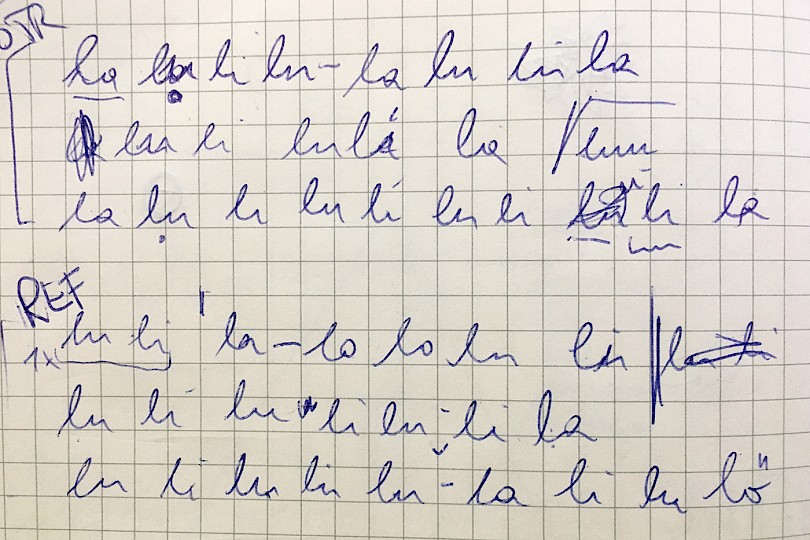 STR
la la li lu - la lu lu la
lu li lulá la
la lu li lu lí lu li li la
REF
1x lu li la - lo lo lu lu
lu li lu li lu - li la
lu li lu lu lu - la li lu lö